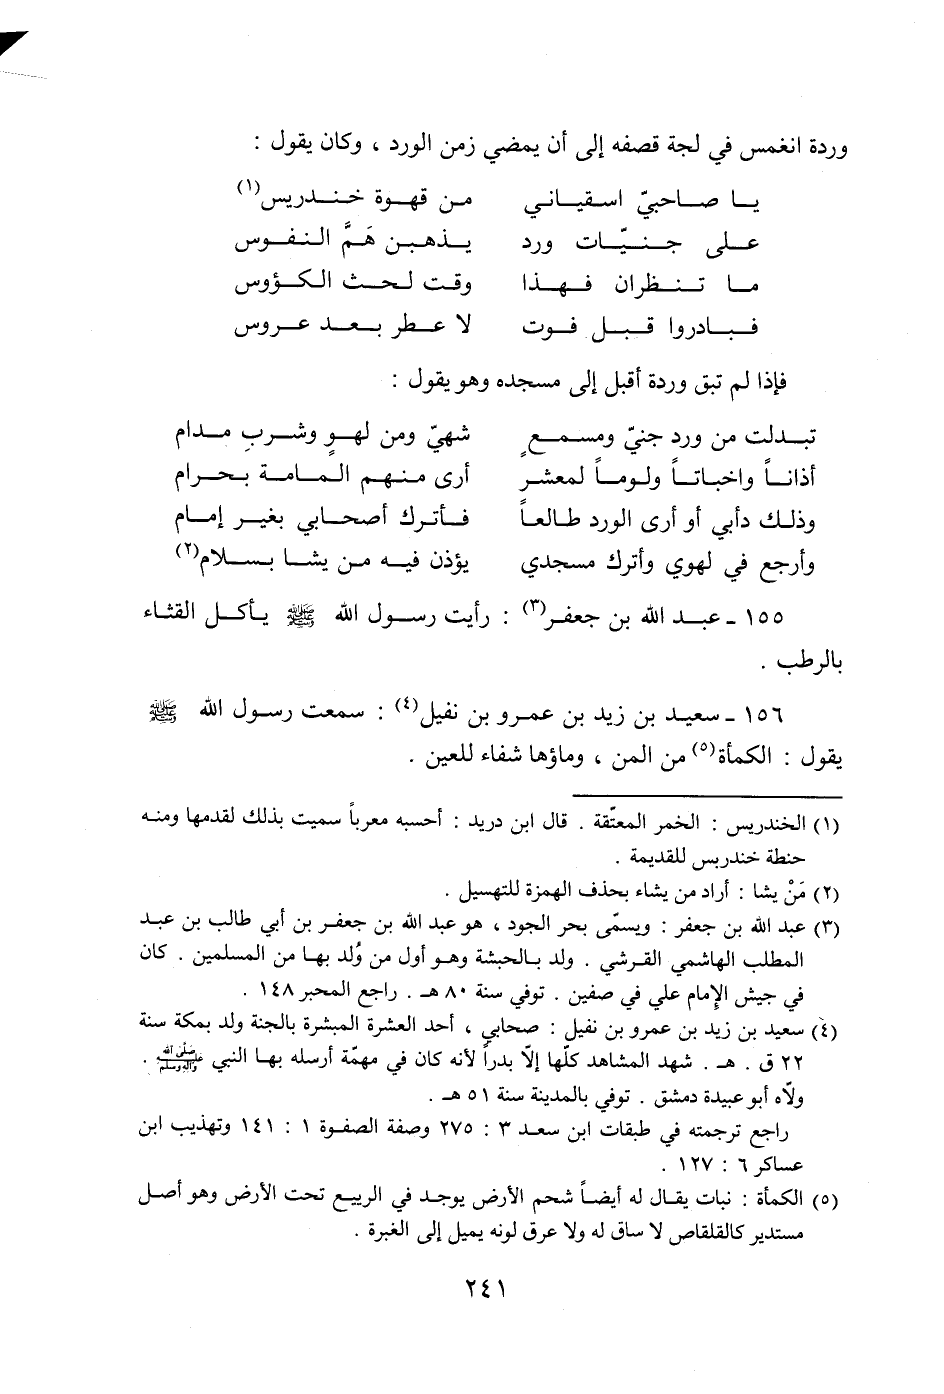 وردة انغمس في لجة قصفه إلى أن يمضي زمن الورد ، وكان يقول :
يا صاحبيّ اسقياني من قهوة خندريس(١)
على جنيّات ورد يذهبن هَمَّ النفوس
ما تنظران فهذا وقت لحث الكؤوس
فبادروا قبل فوت لا عطر بعد عروس
فإذا لم تبق وردة أقبل إلى مسجده وهو يقول :
تبدلت من ورد جنيّ ومسمعٍ شهيّ ومن لهوٍ وشربِ مدام
أذاناً واخباتاً ولوماً لمعشر أرى منهم المامة بحرام
وذلك دأبي أو أرى الورد طالعاً فأترك أصحابي بغير إمام
وأرجع في لهوي وأترك مسجدي يؤذن فيه من يشا بسلام(٢)
١٥٥ ـ عبد الله بن جعفر(٣) : رأيت رسول الله ﷺ يأكل القثاء
بالرطب .
١٥٦ ـ سعيد بن زيد بن عمرو بن نفيل(٤) : سمعت رسول الله ﷺ
يقول : الكمأة(٥) من المن ، وماؤها شفاء للعين .
(١) الخندريس : الخمر المعتّقة . قال ابن دريد : أحسبه معرباً سميت بذلك لقدمها ومنه
حنطة خندريس للقديمة .
(٢) مَنْ يشا : أراد من يشاء بحذف الهمزة للتسهيل .
(٣) عبد الله بن جعفر : ويسمّى بحر الجود ، هو عبد الله بن جعفر بن أبي طالب بن عبد
المطلب الهاشمي القرشي . ولد بالحبشة وهو أول من وُلد بها من المسلمين . كان
في جيش الإمام علي في صفين . توفي سنة ٨٠ هـ . راجع المحبر ١٤٨ .
(٤) سعيد بن زيد بن عمرو بن نفيل : صحابي ، أحد العشرة المبشرة بالجنة ولد بمكة سنة
٢٢ ق . هـ . شهد المشاهد كلّها إلاّ بدراً لأنه كان في مهمّة أرسله بها النبي ﷺ .
ولاّه أبو عبيدة دمشق . توفي بالمدينة سنة ٥١ هـ .
راجع ترجمته في طبقات ابن سعد ٣ : ٢٧٥ وصفة الصفوة ١ : ١٤١ وتهذيب ابن
عساكر ٦ : ١٢٧ .
(٥) الكمأة : نبات يقال له أيضاً شحم الأرض يوجد في الربيع تحت الأرض وهو أصل
مستدير كالقلقاص لا ساق له ولا عرق لونه يميل إلى الغبرة .
٢٤١